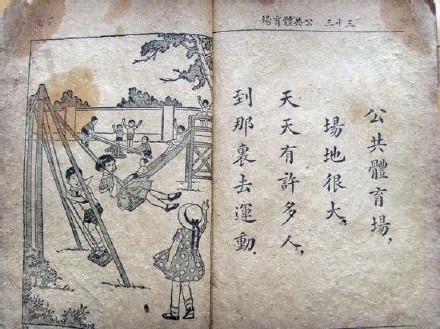 三十三　公共體育場
公共體育場，
場地很大，
天天有許多人，
到那裏去運動．